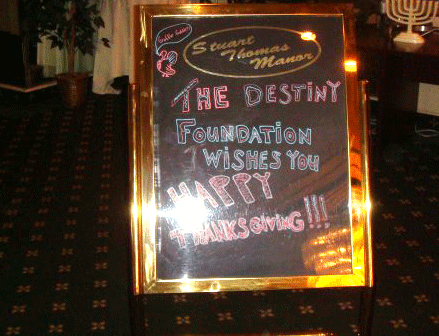 Stuart
Thomas
Manor
THE DESTINY
FOUNDATION
WISHES YOU
HAPPY
THANKSGIVING!!!